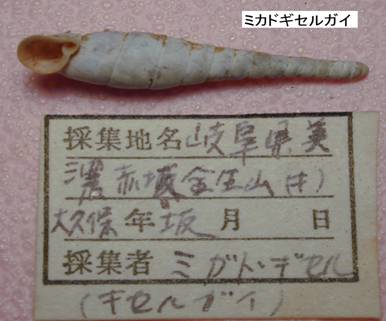 ミカドギセルガイ
採集地名 岐阜県美
濃赤坂金生山(キ)
大久保年坂月 日
採集者 ミガド・ギセル
(キセルガイ)